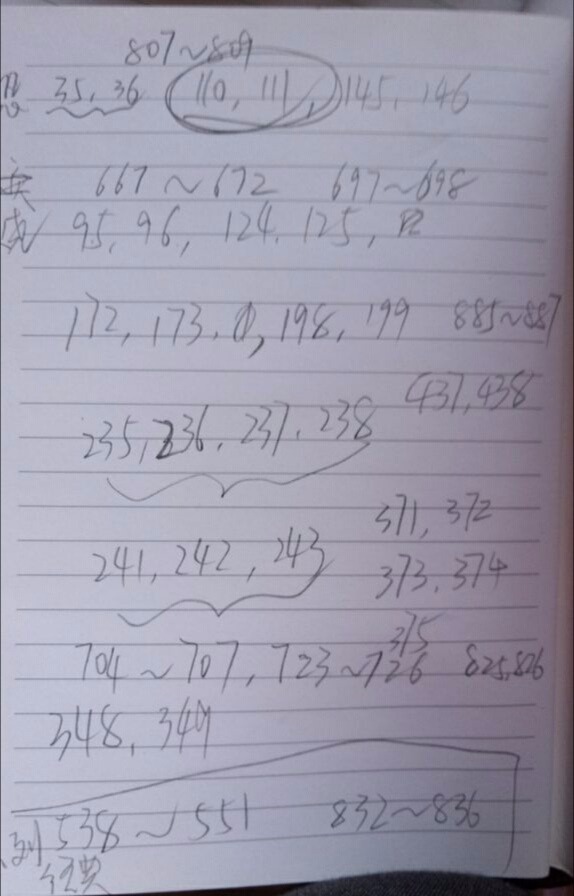 807~809
35, 36 110, 111, 145, 146
667~672 697~698
感 95, 96, 124. 125,
172, 173. 198, 199 885~887
437, 438
235, 236. 237. 238
371, 372
241, 242, 243
373. 374
375
704~707, 723~726 825,826
348, 349
到 538~551 832~836
经典